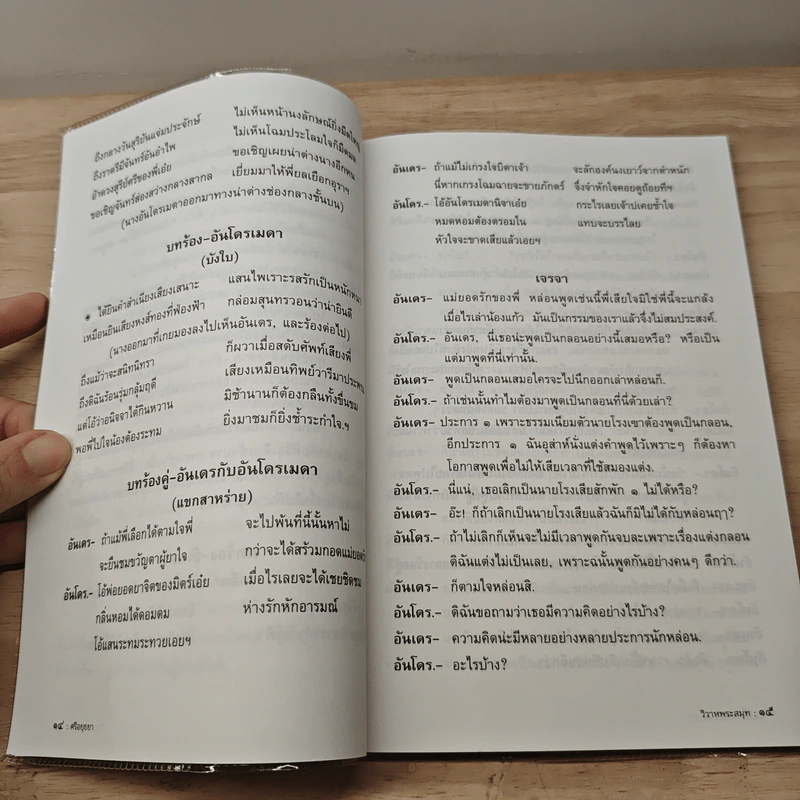 ถึงกลางวันสุริยันแจ่มประจักษ์ ไม่เห็นหน้านงลักษณ์ยิ่งมืดใหญ่
ถึงราตรีมีจันทร์อันอำไพ ไม่เห็นโฉมประโลมใจก็มืดมน
อ้าดวงสุรีย์ศรีของพี่เอ๋ย ขอเชิญเผยหน้าต่างนางอีกหน
ขอเชิญจันทร์ส่องสว่างกลางสากล เยี่ยมมาให้พี่ยลเยือกอุราฯ
(นางอันโดรเมดาออกมาทางน่าต่างช่องกลางชั้นบน)
บทร้อง-อันโดรเมดา
(บังใบ)
๏ ได้ยินคำสำเนียงเสียงเสนาะ แสนไพเราะรสรักเป็นหนักหนา
เหมือนยินเสียงหงส์ทองที่ฟ่องฟ้า กล่อมสุนทรวอนว่าน่ายินดี
(นางออกมาที่เกยมองลงไปเห็นอันเดร, และร้องต่อไป)
ถึงแม้ว่าจะสนิทนิทรา ก็ผวาเมื่อสดับศัพท์เสียงพี่
ถึงดิฉันร้อนรุ่มกลุ้มฤดี เสียงเหมือนทิพย์วารีมาประพรม
แต่โอ้ว่าอนิจจาได้กินหวาน มิช้านานก็ต้องกลืนทั้งขื่นขม
พอพี่ไปใจน้องต้องระทม ยิ่งมาชมก็ยิ่งช้ำระกำใจ.ฯ
บทร้องคู่-อันเดรกับอันโดรเมดา
(แขกสาหร่าย)
อันเดร- ถ้าแม้พี่เลือกได้ตามใจพี่ จะไปพ้นที่นี้นั้นหาไม่
จะยืนชมขวัญตาผู้ยาใจ กว่าจะได้สร้วมกอดแม่ยอดรัก
อันโดร.- โอ้พ่อยอดยาจิตจของมิตร์เอ๋ย เมื่อไรเลยจะได้เชยชิดชม
กลิ่นหอมได้ดอมดม ห่างรักหักอารมณ์
โอ้แสนระทมระทวยเอยฯ
๑๔ : ศรีอยุธยา
อันเดร- ถ้าแม้ไม่เกรงใจบิดาเจ้า จะลักองค์นงเยาว์จากตำหนัก
นี่หากเกรงโฉมฉายจะขายภักตร์ จึ่งจำหักใจคอยดูถ้อยทีฯ
อันโดร.- โอ้อันโดรเมดานิจาเอ๋ย กระไรเลยเจ้าบ่เคยช้ำใจ
หมดหอมต้องตรอมใน แทบจะบรรไลย
หัวใจจะขาดเสียแล้วเอยฯ
เจรจา
อันเดร- แม่ยอดรักของพี่ หล่อนพูดเช่นนี้พี่เสียใจมิใช่พี่นี้จะแกล้ง
เมื่อไรเล่าน้องแก้ว มันเป็นกรรมของเราแล้วจึ่งไม่สมประสงค์.
อันโดร.- อันเดร, นี่เธอน่ะพูดเป็นกลอนอย่างนี้เสมอหรือ? หรือเป็น
แต่มาพูดที่นี่เท่านั้น.
อันเดร- พูดเป็นกลอนเสมอใครจะไปนึกออกเล่าหล่อนก็.
อันโดร.- ถ้าเช่นนั้นทำไมต้องมาพูดเป็นกลอนที่นี่ด้วยเล่า?
อันเดร- ประการ ๑ เพราะธรรมเนียมตัวนายโรงเขาต้องพูดเป็นกลอน,
อีกประการ ๑ ฉันอุส่าห์นั่งแต่งคำพูดไว้เพราะๆ ก็ต้องหา
โอกาสพูดเพื่อไม่ให้เสียเวลาที่ใช้สมองแต่ง.
อันโดร.- นี่แน่, เธอเลิกเป็นนายโรงเสียสักพัก ๑ ไม่ได้หรือ?
อันเดร- อ๊ะ! ก็ถ้าเลิกเป็นนายโรงเสียแล้วฉันก็มิไม่ได้กับหล่อนฤๅ?
อันโดร.- ถ้าไม่เลิกก็เห็นจะไม่มีเวลาพูดกันจบละเพราะเรื่องแต่งกลอน
ดิฉันแต่งไม่เป็นเลย, เพราะฉนั้นพูดกันอย่างคนๆ ดีกว่า.
อันเดร- ก็ตามใจหล่อนสิ.
อันโดร.- ดิฉันขอถามว่าเธอมีความคิดอย่างไรบ้าง?
อันเดร- ความคิดน่ะมีหลายอย่างหลายประการนักหล่อน.
อันโดร.- อะไรบ้าง?
วิวาหพระสมุท : ๑๕